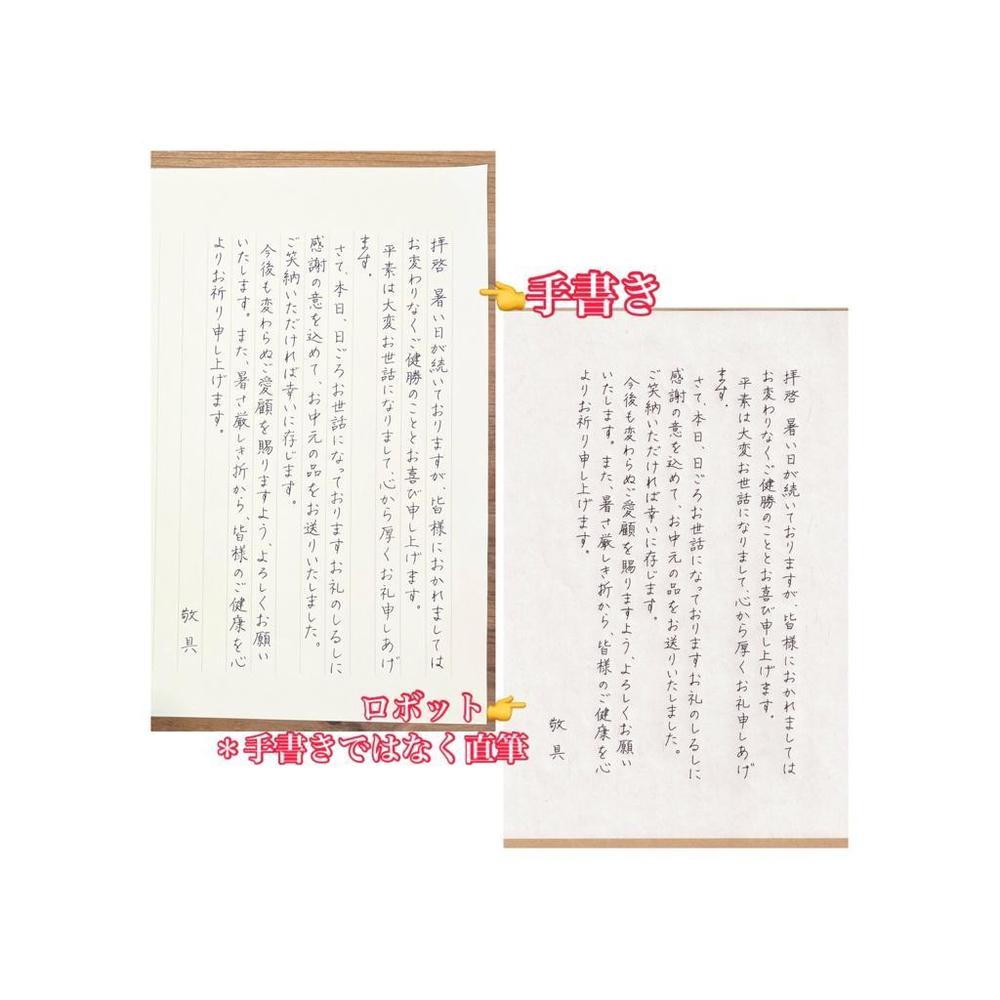 拝啓 暑い日が続いておりますが、皆様におかれましては
お変わりなくご健勝のこととお喜び申し上げます。
平素は大変お世話になりまして、心から厚くお礼申しあげ
ます。
さて、本日、日ごろお世話になっておりますお礼のしるしに
感謝の意を込めて、お中元の品をお送りいたしました。
ご笑納いただければ幸いに存じます。
今後も変わらぬご愛顧を賜りますよう、よろしくお願い
いたします。また、暑さ厳しき折から、皆様のご健康を心
よりお祈り申し上げます。
敬具
👈手書き
拝啓 暑い日が続いておりますが、皆様におかれましては
お変わりなくご健勝のこととお喜び申し上げます。
平素は大変お世話になりまして、心から厚くお礼申しあげ
ます。
さて、本日、日ごろお世話になっておりますお礼のしるしに
感謝の意を込めて、お中元の品をお送りいたしました。
ご笑納いただければ幸いに存じます。
今後も変わらぬご愛顧を賜りますよう、よろしくお願い
いたします。また、暑さ厳しき折から、皆様のご健康を心
よりお祈り申し上げます。
敬具
ロボット👉
＊手書きではなく直筆